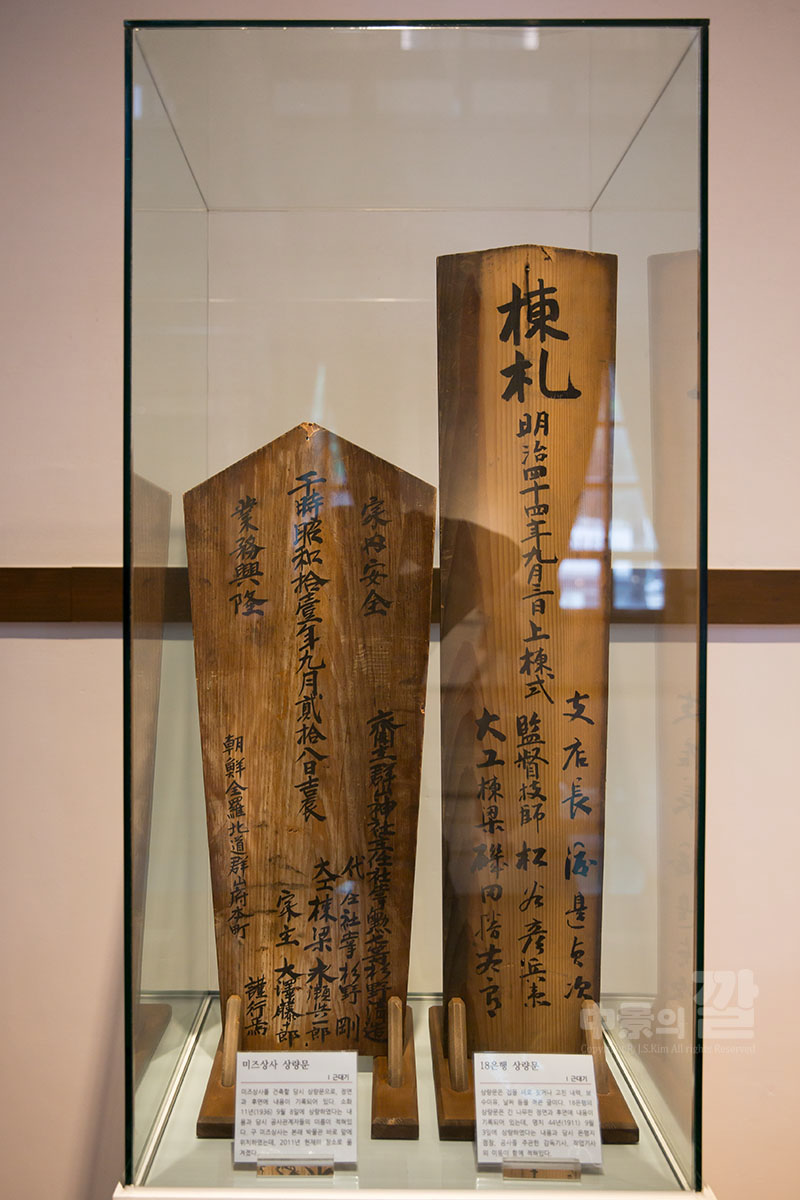 棟札
明治四十四年九月三日上棟式
支店長 渡邊貞次
監督技師 松谷彦兵衛
大工棟梁 磯田勝太郎
家内安全
于時昭和拾壹年九月貳拾八日吉辰
業務興隆
齋主群山神社
代 社掌 杉野 剛
大工棟梁 永瀬
家主 大澤藤
朝鮮全羅北道群山府本町
謹行焉
미즈상사 상량문
| 근대기
미즈상사를 건축할 당시 상량문으로, 정면
과 후면에 내용이 기록되어 있다. 소화
11년(1936) 9월 8일에 상량하였다는 내
용과 당시 공사관계자들의 이름이 적혀있
다. 구 미즈상사는 본래 박물관 바로 앞에
위치하였는데, 2011년 현재의 장소로 옮
겨졌다.
18은행 상량문
| 근대기
상량문은 집을 새로 짓거나 고친 내력, 보
수이유, 날짜 등을 적은 글이다. 18은행의
상량문은 긴 나무판 정면과 후면에 내용이
기록되어 있는데, 명치 44년(1911) 9월
3일에 상량하였다는 내용과 당시 은행지
점장, 공사를 주관한 감독기사, 작업기사
의 이름이 함께 적혀있다.
中景의 깔
Copyright J.S.Kim All rights Reserved